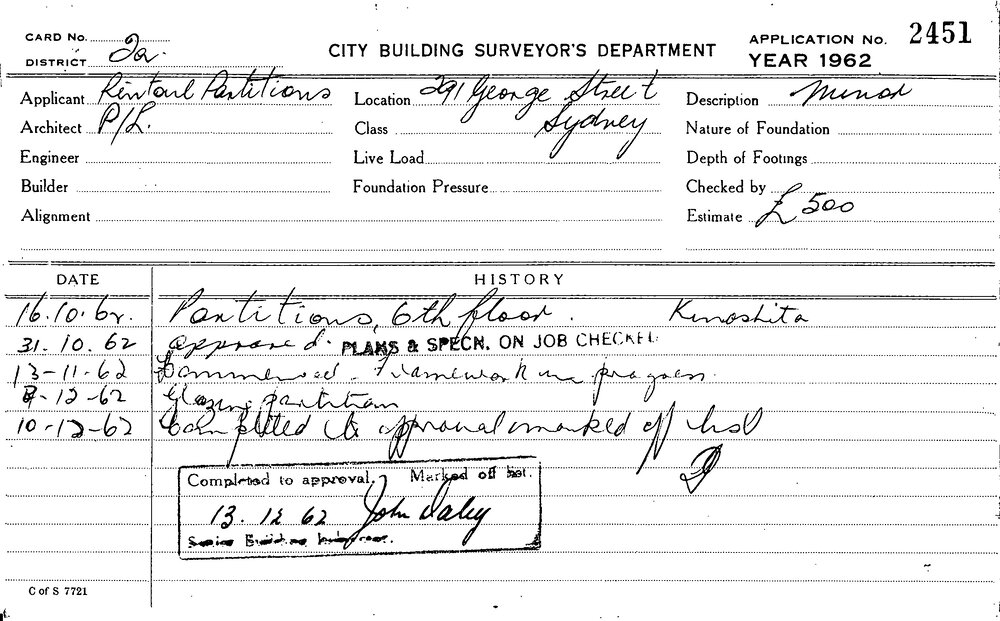 CARD No.
CITY BUILDING SURVEYOR'S DEPARTMENT
APPLICATION No. 2451
DISTRICT 2a.
YEAR 1962
Applicant Rintoul Partitions
Location 291 George Street
Description Minor
Architect P/L.
Class Sydney
Nature of Foundation
Engineer
Live Load
Depth of Footings
Builder
Foundation Pressure
Checked by
Alignment
Estimate £500
DATE HISTORY
16.10.62. Partitions, 6th floor. Kinoshita
31.10.62 approved. PLANS & SPECN. ON JOB CHECKED
13-11-62 Commenced - Framework in progress.
12-62 Glazing partitions
10-12-62 Completed to approval marked off list
Completed to approval. Marked off list.
13.12.62 John Daley
Senior Building Inspector.
C of S 7721